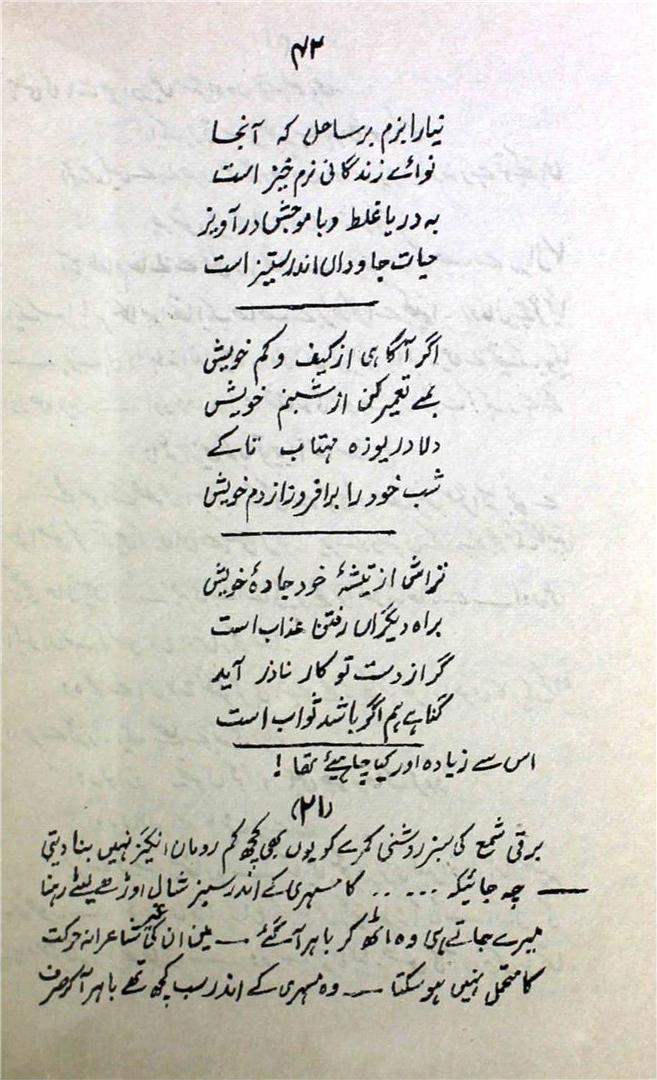 ۴۲
نیارا بزم بر ساحل کہ آنجا
نوائے زندگانی نرم خیز است
بہ دریا غلط و با موجش در آویز
حیات جاوداں اندر ستیز است
اگر آگاہی از کیف و کم خویش
یمے تعمیر کن از شبنم خویش
دلا دریوزہ مہتاب تاکے
شب خود را برافروز از دم خویش
تراش از تیشۂ خود جادۂ خویش
براہ دیگراں رفتن عذاب است
گر از دست تو کار نادر آید
گناہے ہم اگر باشد ثواب است
اس سے زیادہ اور کیا چاہیئے تھا !
(۲۱)
برقی شمع کی سبز روشنی کمرے کو یوں بھی کچھ کم رومان انگیز نہیں بنا دیتی
—— چہ جائیکہ .... کا مسہری کے اندر سبز شال اوڑھے لیٹے رہنا
میرے جاتے ہی وہ اٹھ کر باہر آ گئے — میں ان کی غیر شاعرانہ حرکت
کا متحمل نہیں ہو سکتا — وہ مسہری کے اندر سب کچھ تھے باہر آ کر صرف